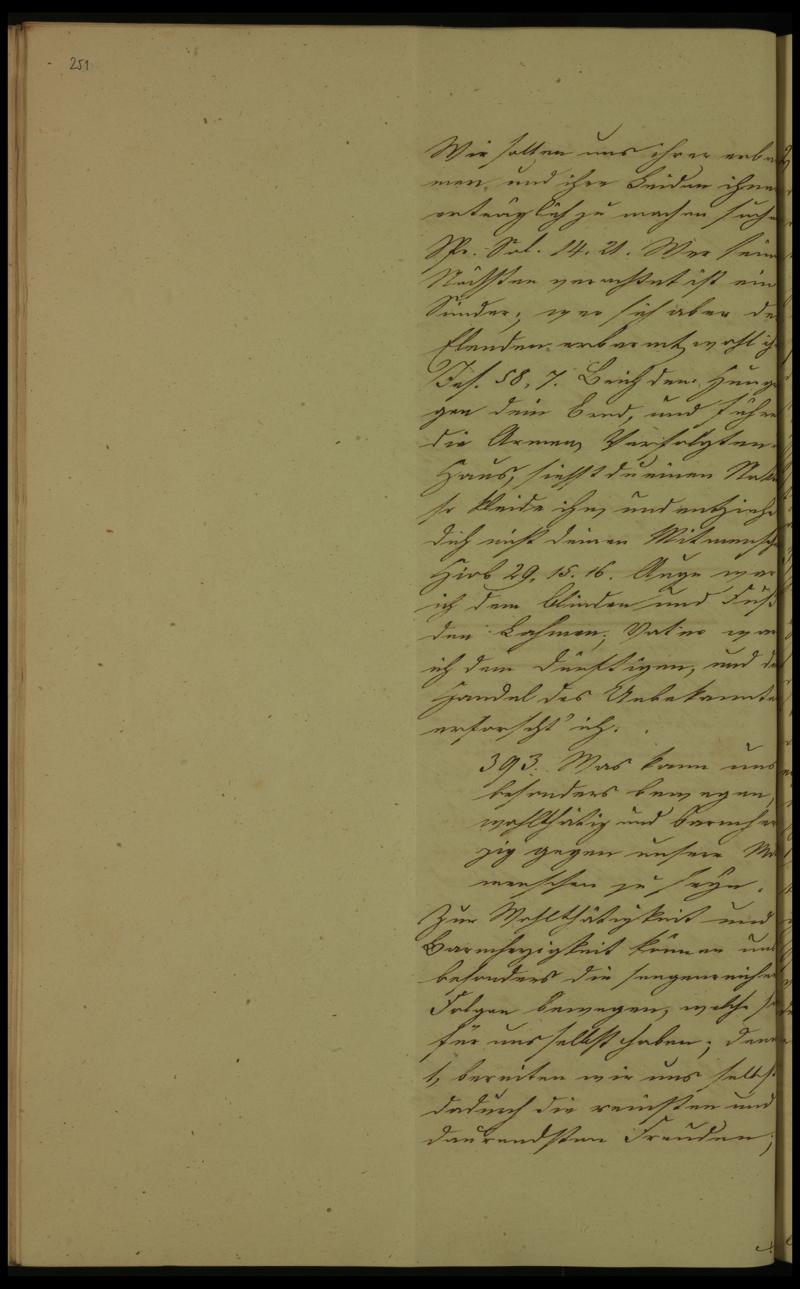 251
Wir sollten uns ihrer erbar
men, und ihre Leiden ihnen
erträglich zu machen suchen
Spr. Sal. 14. 21. Wer sein
Nächsten verachtet ist ein
Sünder; wer sich aber de
Elenden erbarmt, wohl ih
Jes. 58, 7. Brich dem Hung
gen dein Brod, und führe
die Armen, Verfolgten
Haus, siehst du einen Nak
so kleide ihn, und entziehe
dich nicht deinen Mitmensch
Hiob 29. 15. 16. Auge war
ich dem Blinden und Fuß
den Lahmen; Vater war
ich dem Dürftigen, und de
Handel des Unbekannte
erforscht' ich.
393. Was kann uns
besonders bewegen,
wohlthätig und barmher
zig gegen unsere Mi
menschen zu seyn.
Zur Wohlthätigkeit und
Barmherzigkeit können uns
besonders die seegenreichen
Folgen bewegen, welche s
für uns selbst haben; denn
1, bereiten wir uns selbst
dadurch die reinsten und
daurendsten Freuden;